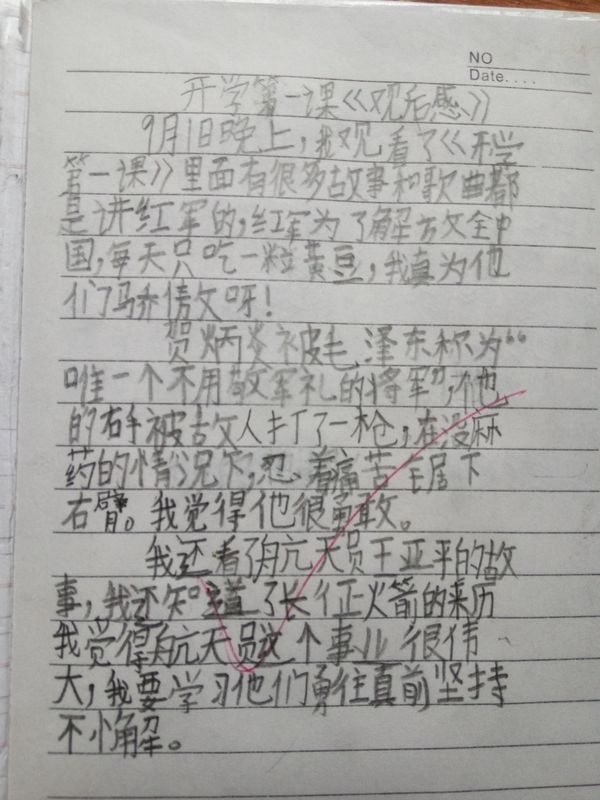 NO
Date....
开学第一课《观后感》
9月1日晚上,我观看了《开学
第一课》里面有很多故事和歌曲都
是讲红军的,红军为了解方文全中
国,每天只吃一粒黄豆,我真为他
们骄傲呀!
贺炳炎被毛泽东称为“
唯一个不用敬军礼的将军”,他
的右手被敌人打了一枪,在没麻
药的情况下,忍着痛苦锯下
右臂。我觉得他很勇敢。
我还看了航天员王亚平的故
事,我还知道了长征火箭的来历
我觉得航天员这个事儿很伟
大,我要学习他们勇往直前坚持
不懈。